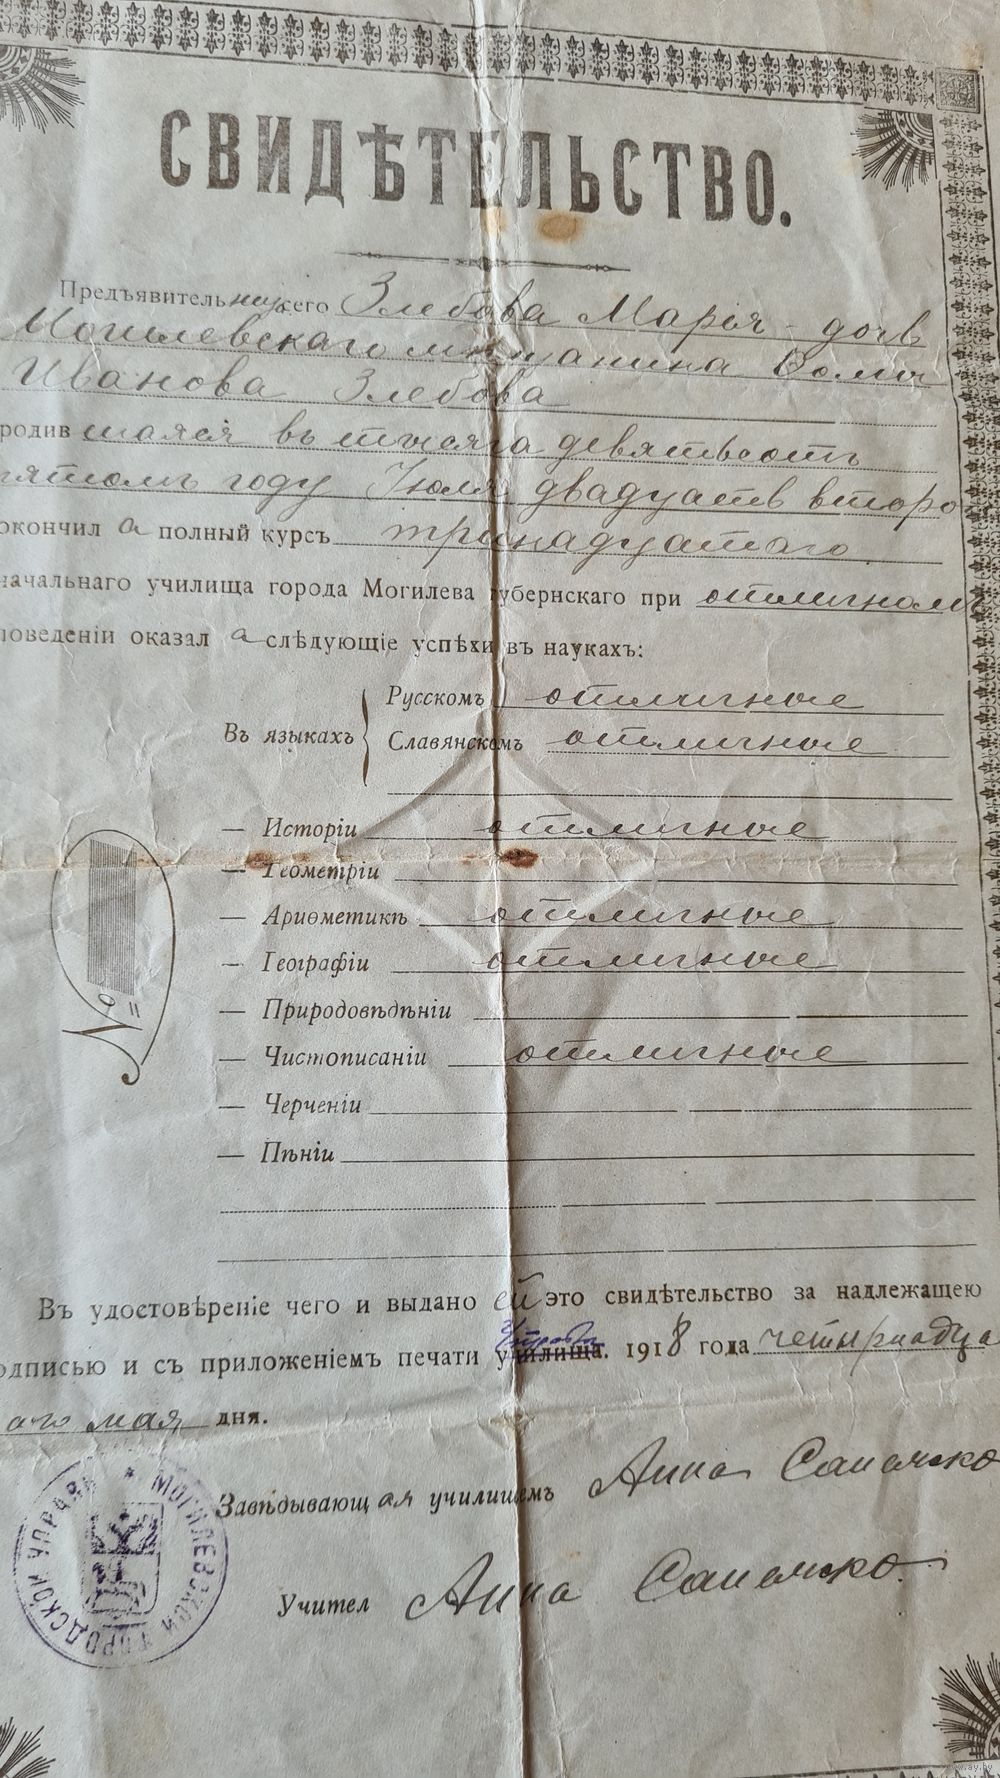 СВИДѢТЕЛЬСТВО.
Предъявительница сего Злебова Марья - дочь
Могилевскаго мѣщанина Фомы
Иванова Злебова
родившаяся въ тысяча девятьсотъ
пятомъ году Іюля двадцать второ
окончила полный курсъ тринадцатаго
начальнаго училища города Могилева губернскаго при отличномъ
поведеніи оказала слѣдующіе успѣхи въ наукахъ:
Въ языкахъ
Русскомъ отличные
Славянскомъ отличные
— Исторіи отличные
— Геометріи
— Ариѳметикѣ отличные
— Географіи отличные
— Природовѣдѣніи
— Чистописаніи отличные
— Черченіи
— Пѣніи
№
Въ удостовѣреніе чего и выдано ей это свидѣтельство за надлежащею
подписью и съ приложеніемъ печати училища. Управы 1918 года четырнадца
аго мая дня.
Завѣдывающая училищемъ Анна
Учител Анна
МОГИЛЕВСКОЙ ГОРОДСКОЙ УПРАВЫ
www.ay.by